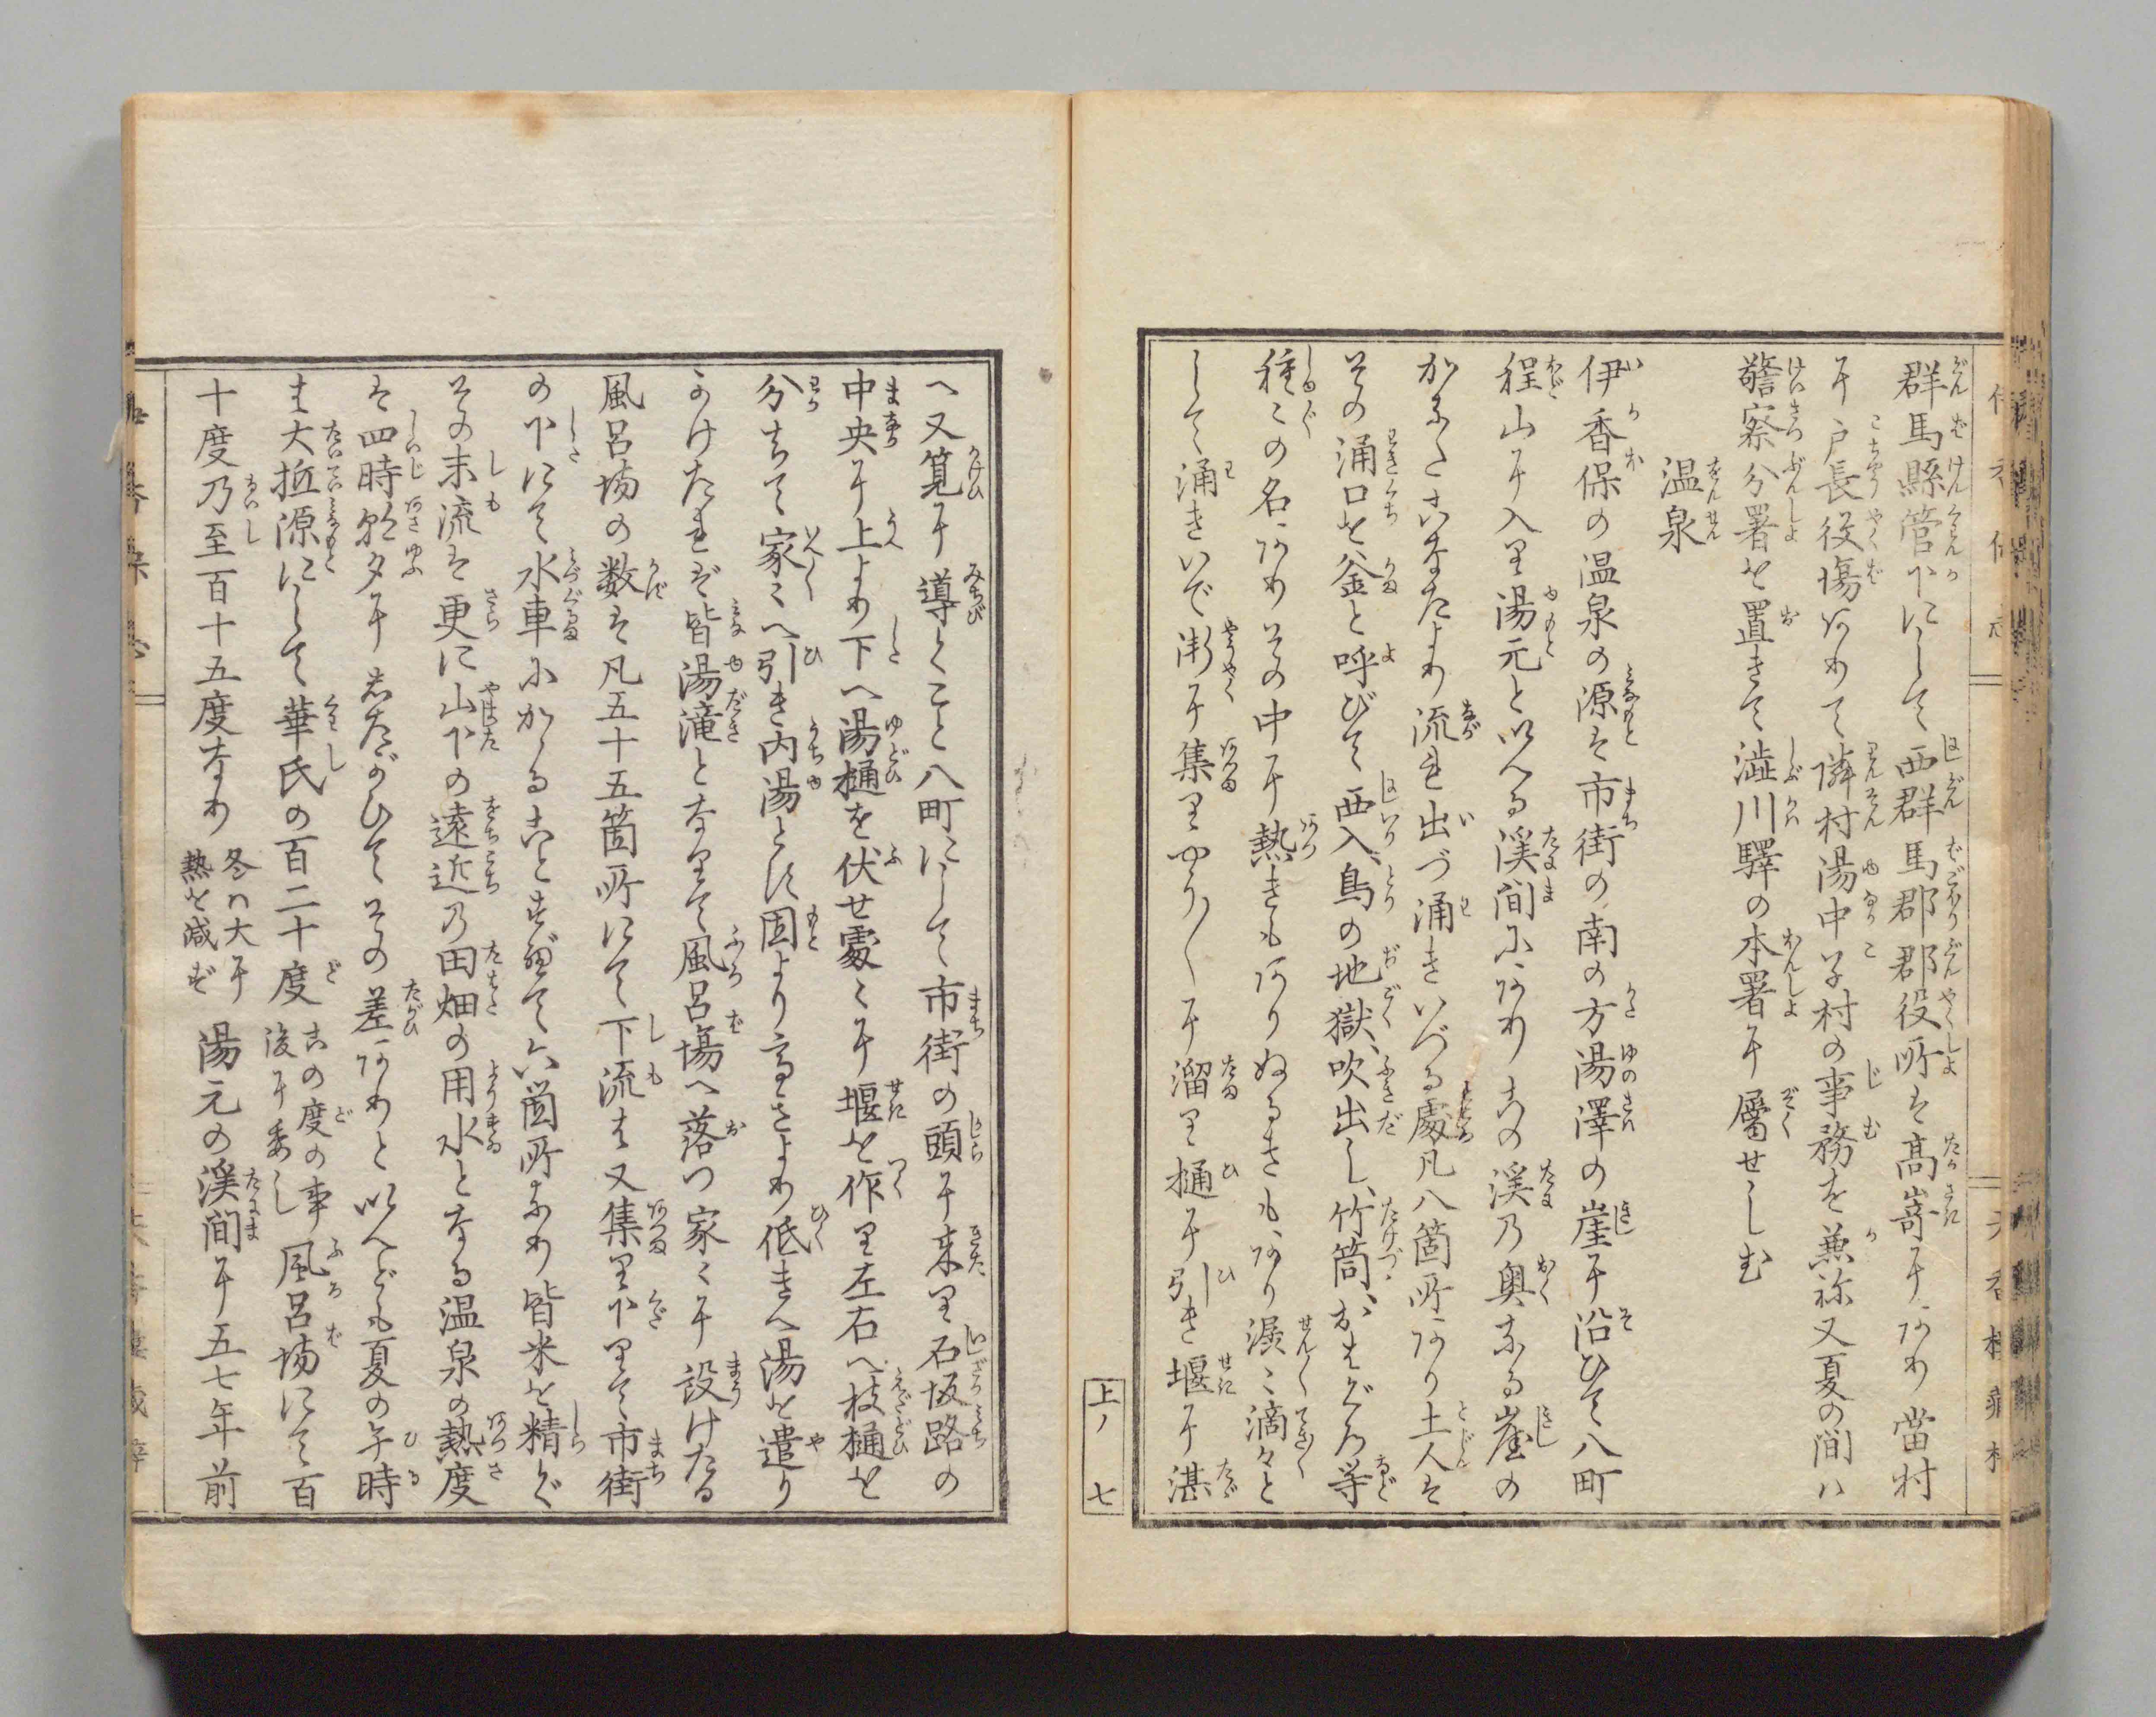 群馬縣管下にして西群馬郡郡役所は高嵜にあり當村
に戸長役塲ありて隣村湯中子村の事務を兼ね又夏の間ハ
警察分署を置きて澁川驛の本署に屬せしむ
温泉
伊香保の温泉の源は市街の南の方湯澤の崖に沿ひて八町
程山に入り湯元といへる渓間にありこの渓の奥なる崖の
かなたこなたより流れ出づ涌きいづる處凡八箇所あり土人は
その涌口を釜と呼びて西入、鳥の地獄、吹出し、竹筒、がまぐろ等
種々の名ありその中に熱きもありぬるきもあり潺々滴々と
して涌きいで漸に集りゆり〳〵に溜り樋に引き堰に湛
へ又筧に導くこと八町にして市街の頭に来り石坂路の
中央に上より下へ湯樋を伏せ處々に堰を作り左右へ枝樋を
分ちて家々へ引き内湯とす固より高きより低きへ湯を遣り
かけたれば皆湯滝となりて風呂塲へ落つ家々に設けたる
風呂塲の数は凡五十五箇所にて下流は又集り下りて市街
の下にて水車にかゝることすべて六箇所なり皆米を精ぐ
その末流は更に山下の遠近の田畑の用水となる温泉の熱度
は四時朝夕にしたがひてその差ありといへども夏の午時
は大抵源にして華氏の百二十度
この度の事
後に委し
風呂塲にて百
十度乃至百十五度なり
冬ハ大に
熱を減ず
湯元の渓間に五七年前
上ノ七